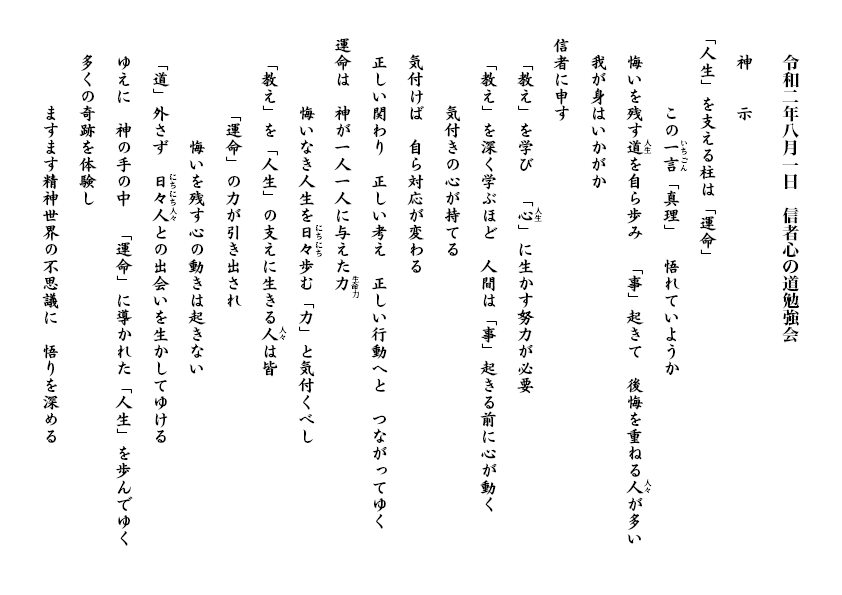 令和二年八月一日　信者心の道勉強会
神　示
「人生」を支える柱は「運命」
この一言「真理」　悟れていようか
いちごん
悔いを残す道を自ら歩み　「事」起きて　後悔を重ねる人が多い
人生
人々
我が身はいかがか
信者に申す
「教え」を学び　「心」に生かす努力が必要
人生
「教え」を深く学ぶほど　人間は「事」起きる前に心が動く
気付きの心が持てる
気付けば　自ら対応が変わる
正しい関わり　正しい考え　正しい行動へと　つながってゆく
運命は　神が一人一人に与えた力
生命力
悔いなき人生を日々歩む「力」と気付くべし
にちにち
「教え」を「人生」の支えに生きる人は皆
人々
「運命」の力が引き出され
悔いを残す心の動きは起きない
「道」外さず　日々人との出会いを生かしてゆける
にちにち人々
ゆえに　神の手の中　「運命」に導かれた「人生」を歩んでゆく
多くの奇跡を体験し
ますます精神世界の不思議に　悟りを深める